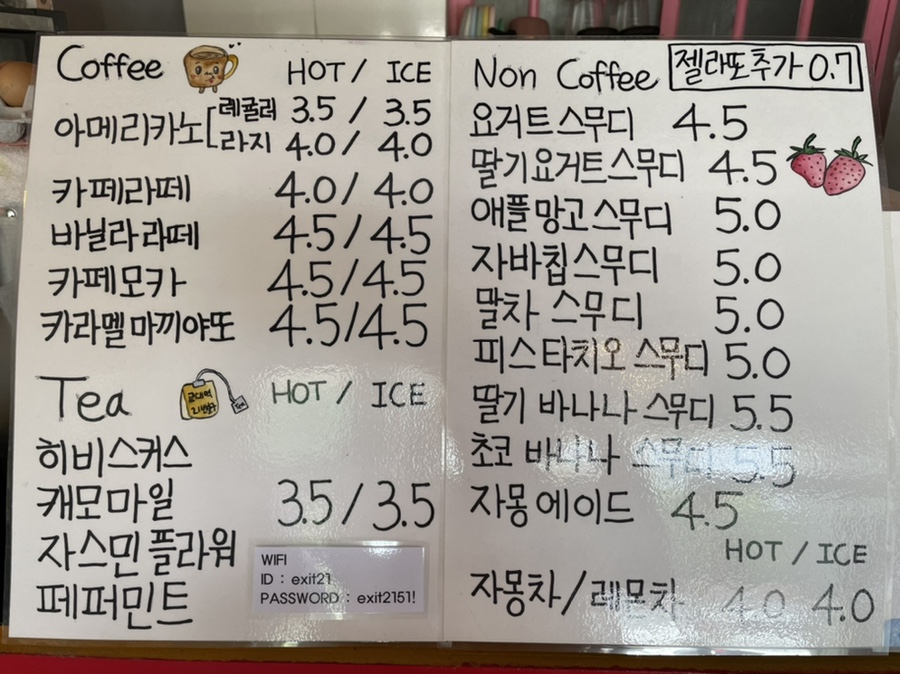 Coffee HOT / ICE
아메리카노 레귤러 3.5 / 3.5
라지 4.0 / 4.0
카페라떼 4.0 / 4.0
바닐라라떼 4.5 / 4.5
카페모카 4.5 / 4.5
카라멜마끼야또 4.5 / 4.5
Tea HOT / ICE
히비스커스
캐모마일 3.5 / 3.5
자스민플라워
페퍼민트
WIFI
ID : exit21
PASSWORD : exit2151!
Non Coffee 젤라또추가 0.7
요거트스무디 4.5
딸기요거트스무디 4.5
애플망고스무디 5.0
자바칩스무디 5.0
말차 스무디 5.0
피스타치오 스무디 5.0
딸기 바나나 스무디 5.5
초코 바나나 스무디 5.5
자몽에이드 4.5
HOT / ICE
자몽차/레몬차 4.0 4.0